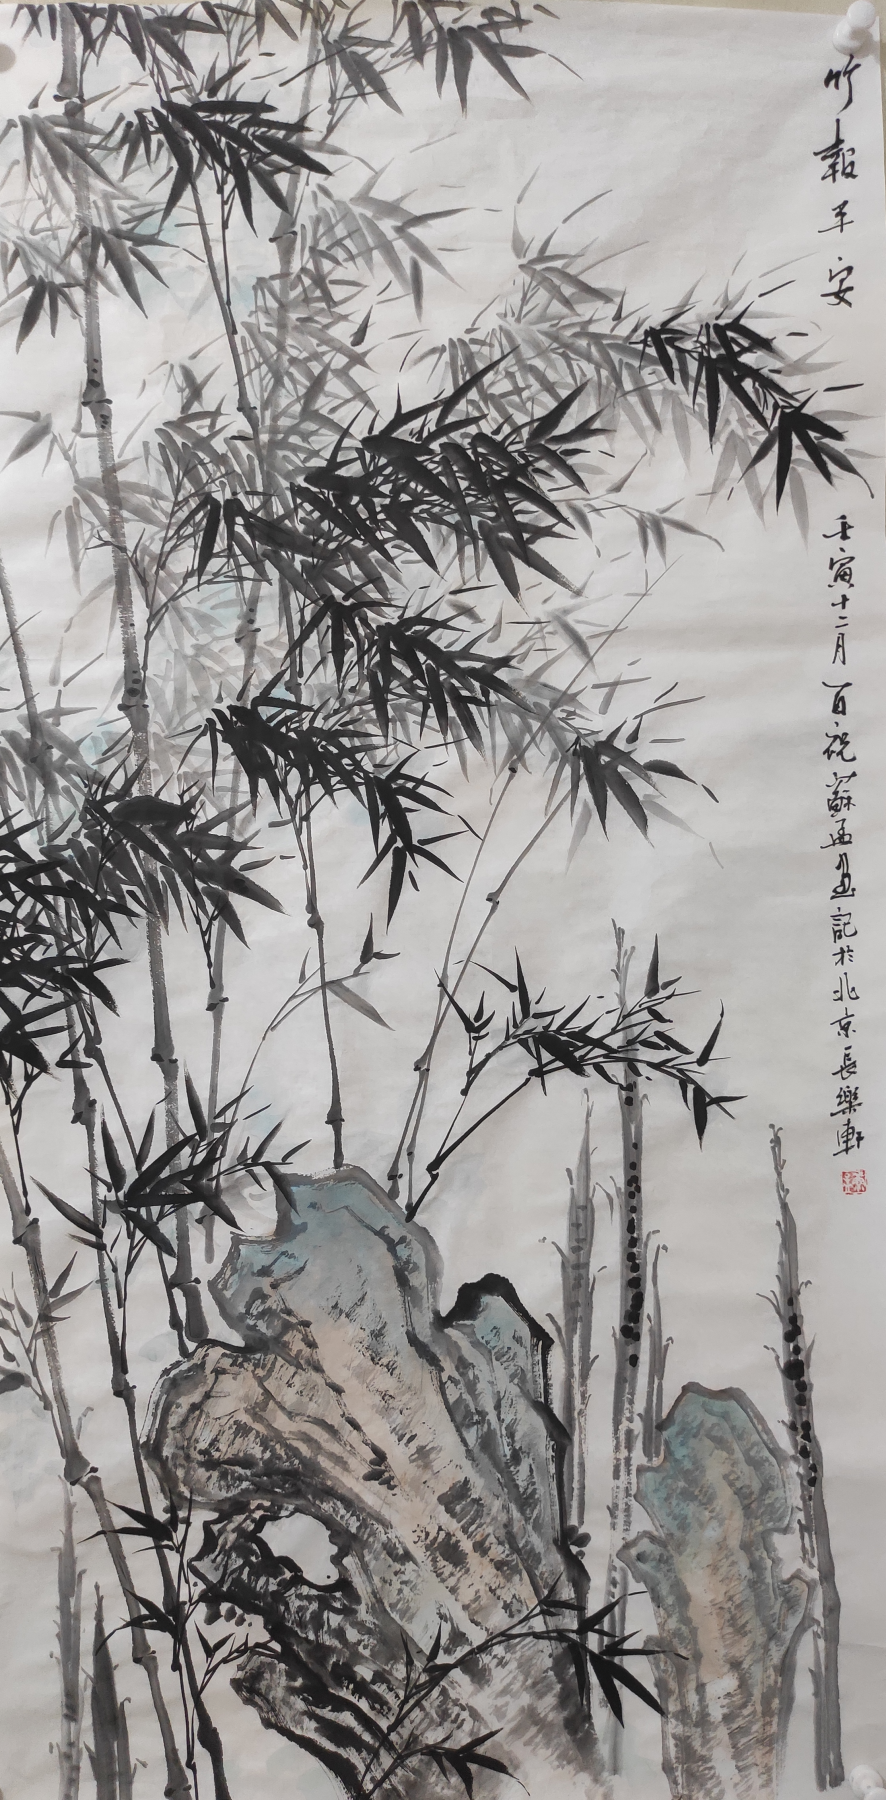 竹報平安
壬寅十二月百祝蘇孟画記於北京長樂軒